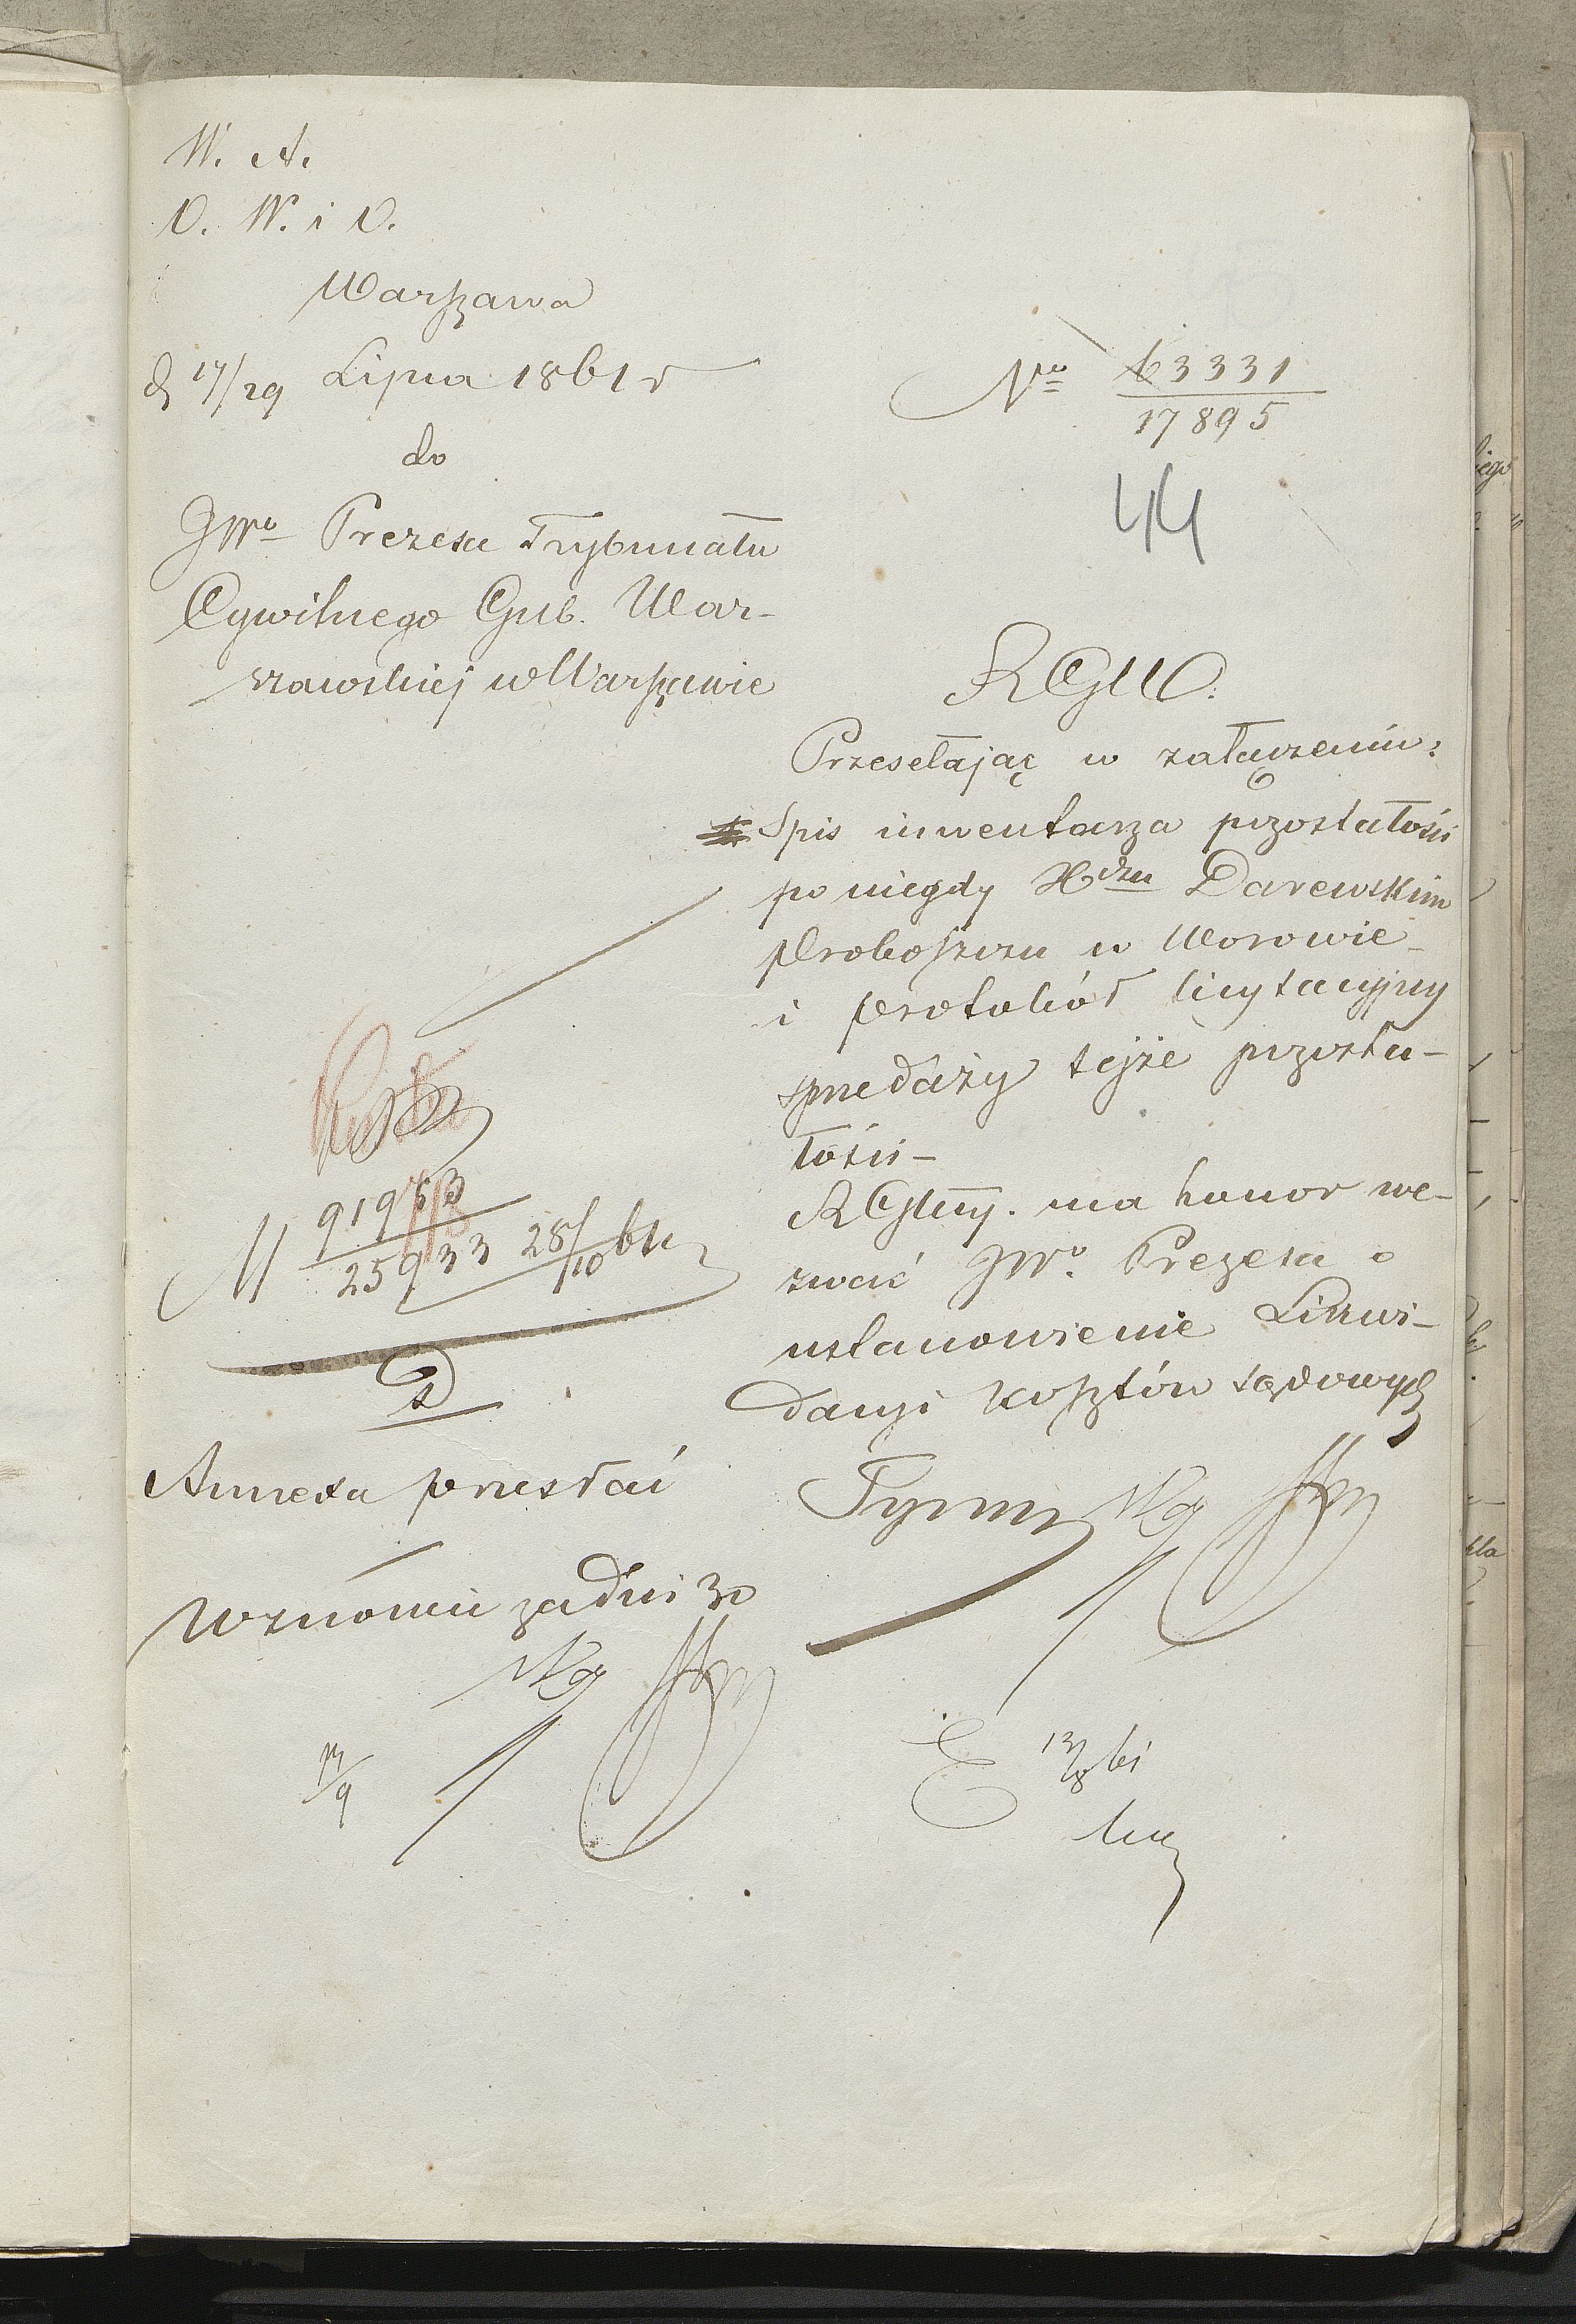 W. A.
O. W. i O.
Warszawa
d 17/29 Lipca 1861 r
do
JWo Prezesa Trybunału
Cywilnego Gub. War-
szawskiej w Warszawie
No 63331
17895
44
RGW.
Przesełając w załączeniu:
Spis inwentarza pozostałości
po niegdy Xdzu Darewskim
Proboszczu w Worowie
i protokół licytacyjny
sprzedaży tejże pozosta-
łości -
RGlny. ma honor we-
zwać JWo. Prezesa o
ustanowienie Likwi-
dacyi kosztów sądowych
91963
25933 28/10 61
Annexa przesłać
Wznowić za dni 30
13/8 61